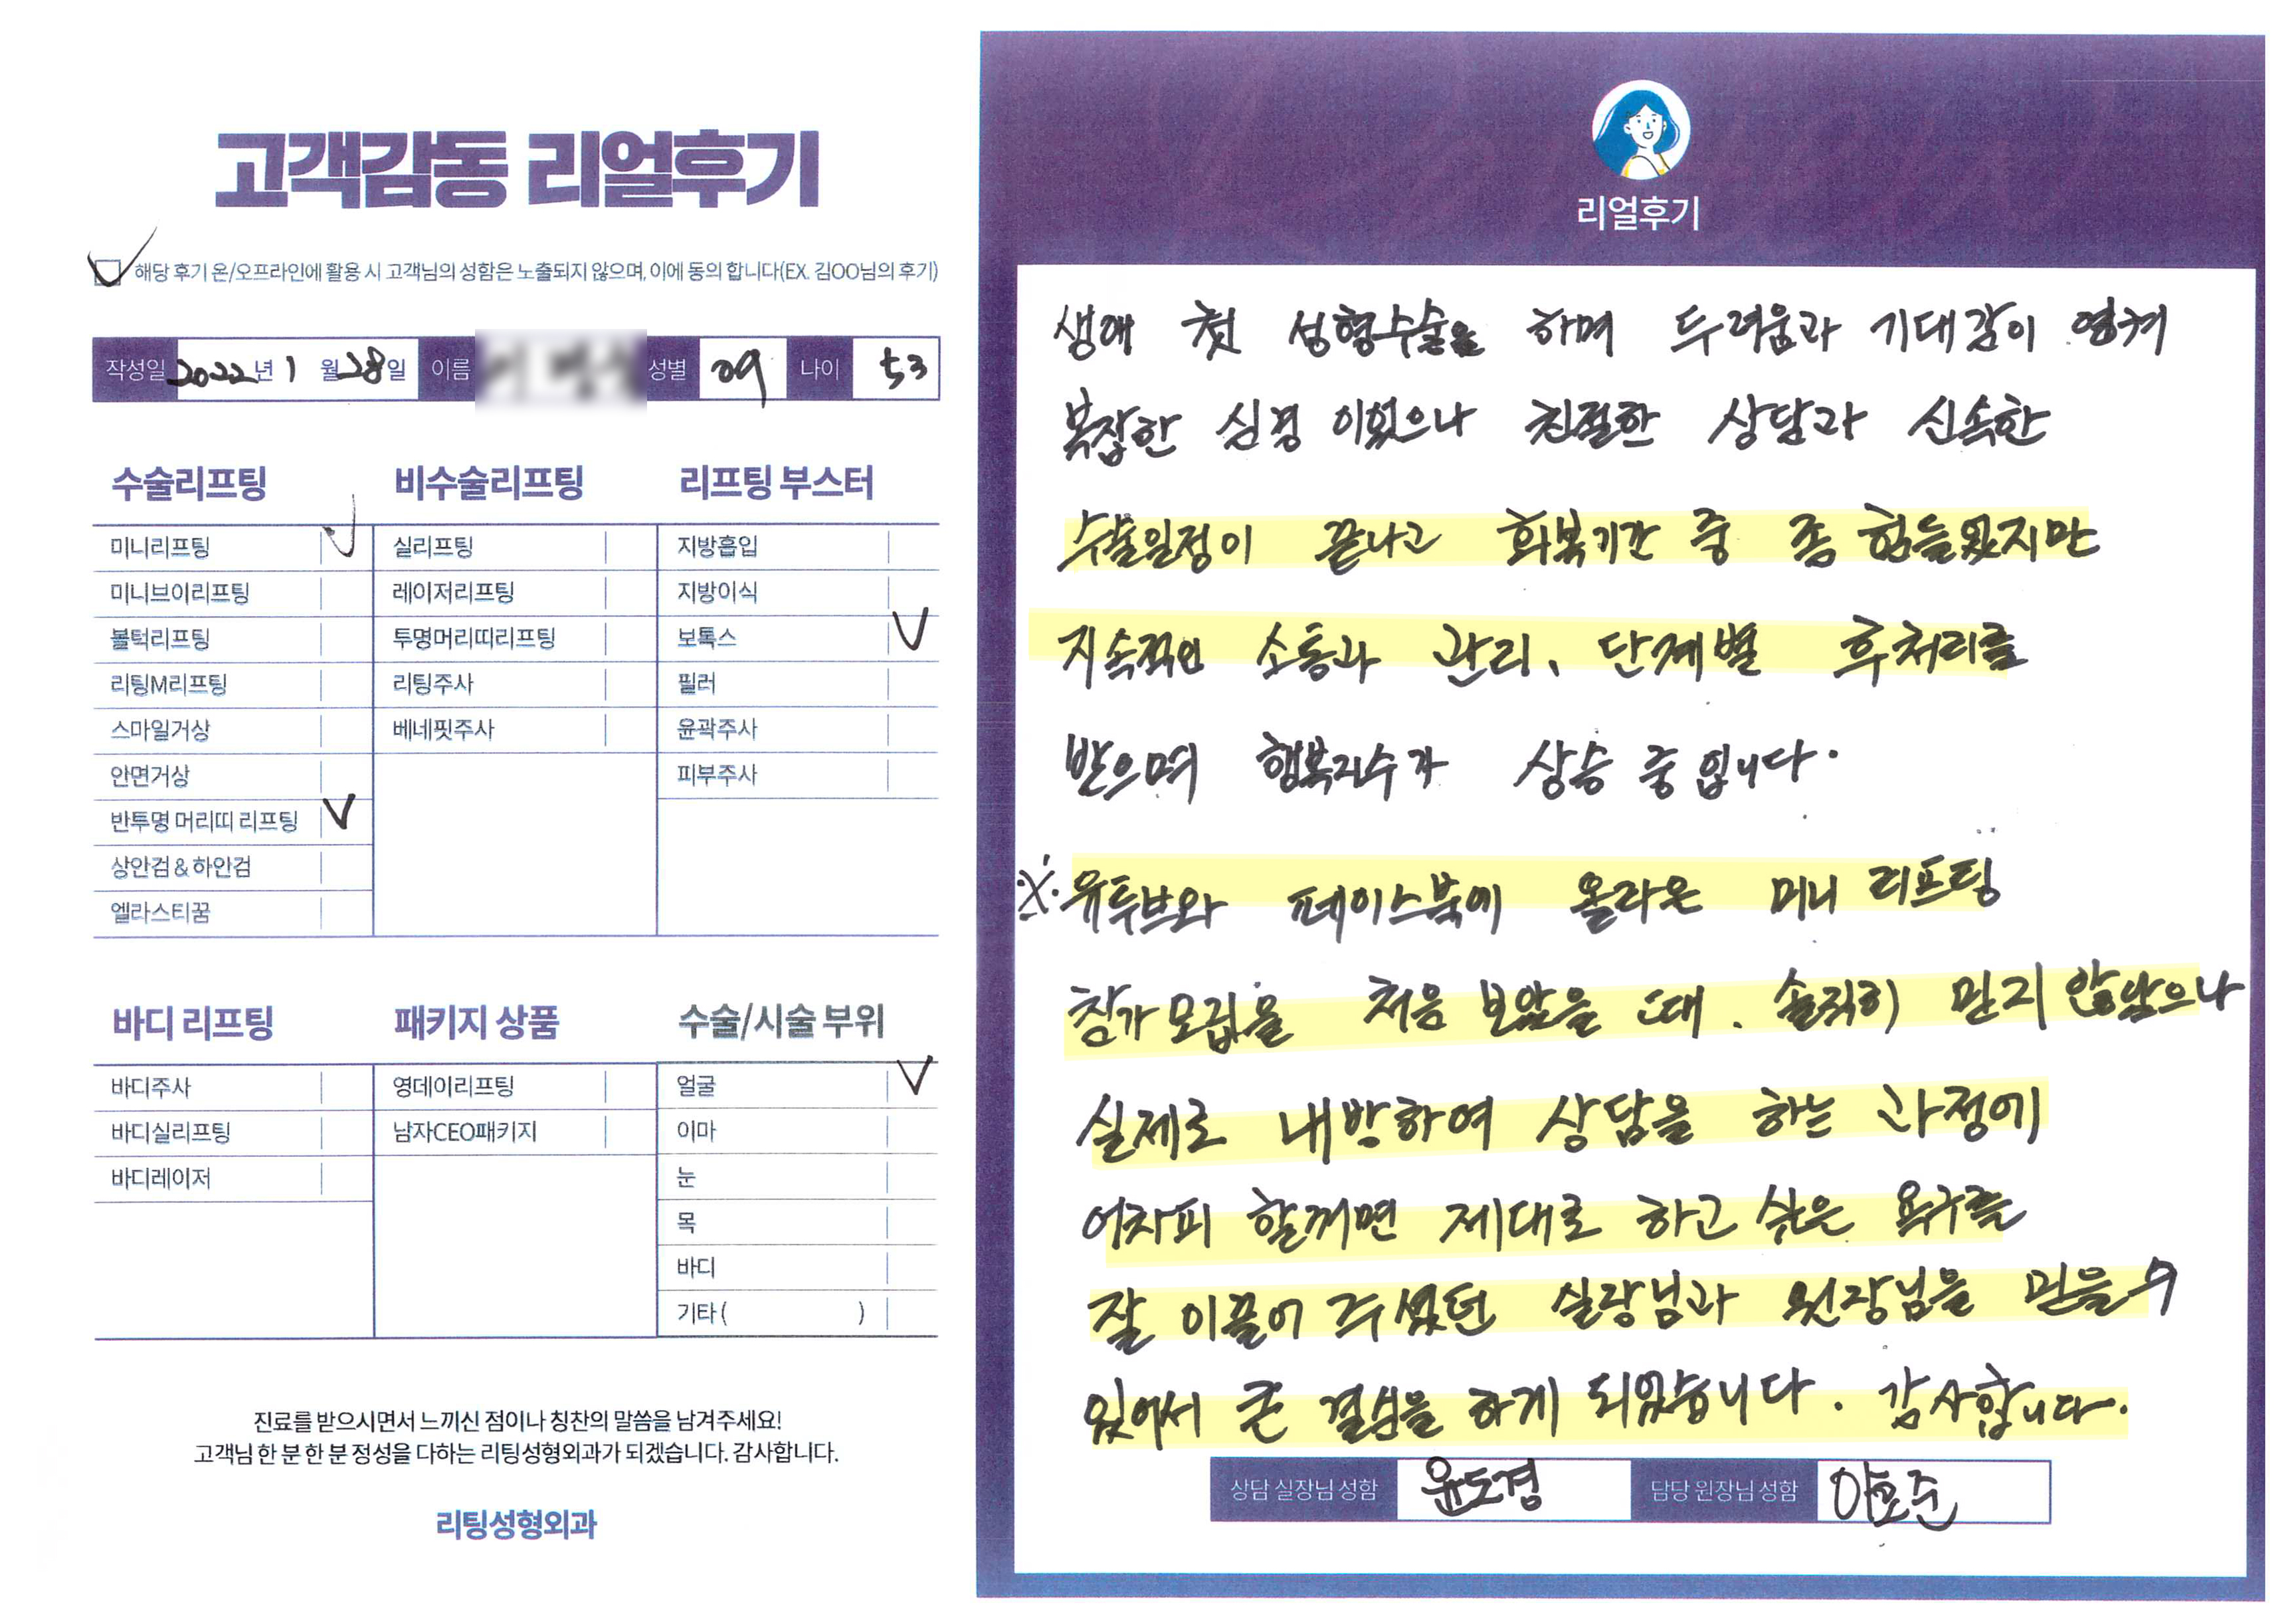 고객감동 리얼후기
해당 후기 온/오프라인에 활용 시 고객님의 성함은 노출되지 않으며, 이에 동의 합니다(EX. 김OO님의 후기)
작성일 2022년 1 월 28일 이름 성별 여 나이 53
수술리프팅
미니리프팅
미니브이리프팅
볼턱리프팅
리팅M리프팅
스마일거상
안면거상
반투명 머리띠 리프팅
상안검 & 하안검
엘라스티꿈
비수술리프팅
실리프팅
레이저리프팅
투명머리띠리프팅
리팅주사
베네핏주사
리프팅 부스터
지방흡입
지방이식
보톡스
필러
윤곽주사
피부주사
바디 리프팅
바디주사
바디실리프팅
바디레이저
패키지 상품
영데이리프팅
남자CEO패키지
수술/시술 부위
얼굴
이마
눈
목
바디
기타 ( )
진료를 받으시면서 느끼신 점이나 칭찬의 말씀을 남겨주세요!
고객님 한 분 한 분 정성을 다하는 리팅성형외과가 되겠습니다. 감사합니다.
리팅성형외과
리얼후기
생애 첫 성형수술을 하며 두려움과 기대감이 엉켜
복잡한 심경 이었으나 친절한 상담과 신속한
수술일정이 끝나고 회복기간 중 좀 힘들었지만
지속적인 소통과 관리, 단계별 후처리를
받으며 행복지수가 상승 중 입니다.
※. 유투브와 페이스북에 올라온 미니 리프팅
참가 모집을 처음 보았을 때. 솔직히 믿지 않았으나
실제로 내방하여 상담을 하는 과정에
어차피 할꺼면 제대로 하고 싶은 욕구를
잘 이끌어 주셨던 실장님과 원장님을 믿을 수
있어서 큰 결심을 하게 되었습니다. 감사합니다.
상담 실장님 성함 윤도경 담당 원장님 성함